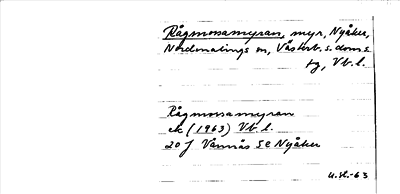 Rågmossamyran, myr, Nyåker,
Nordmalings sn, Västerb. s. doms.
tg, Vb. l.
Rågmossamyran
ek (1963) Vb. l.
20 J Vännäs SE Nyåker
U.Sl.-63